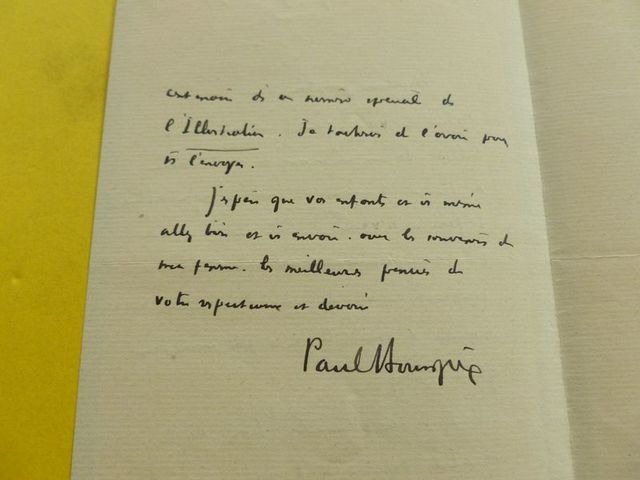 numéro spécial de
l'Illustration. Je tâcherai de l'avoir pour
vs l'envoyer.
J'espère que vos enfants et vs même
allez bien et vs envoie. avec les souvenirs de
ma femme. les meilleures pensées de
votre respectueux et dévoué
Paul